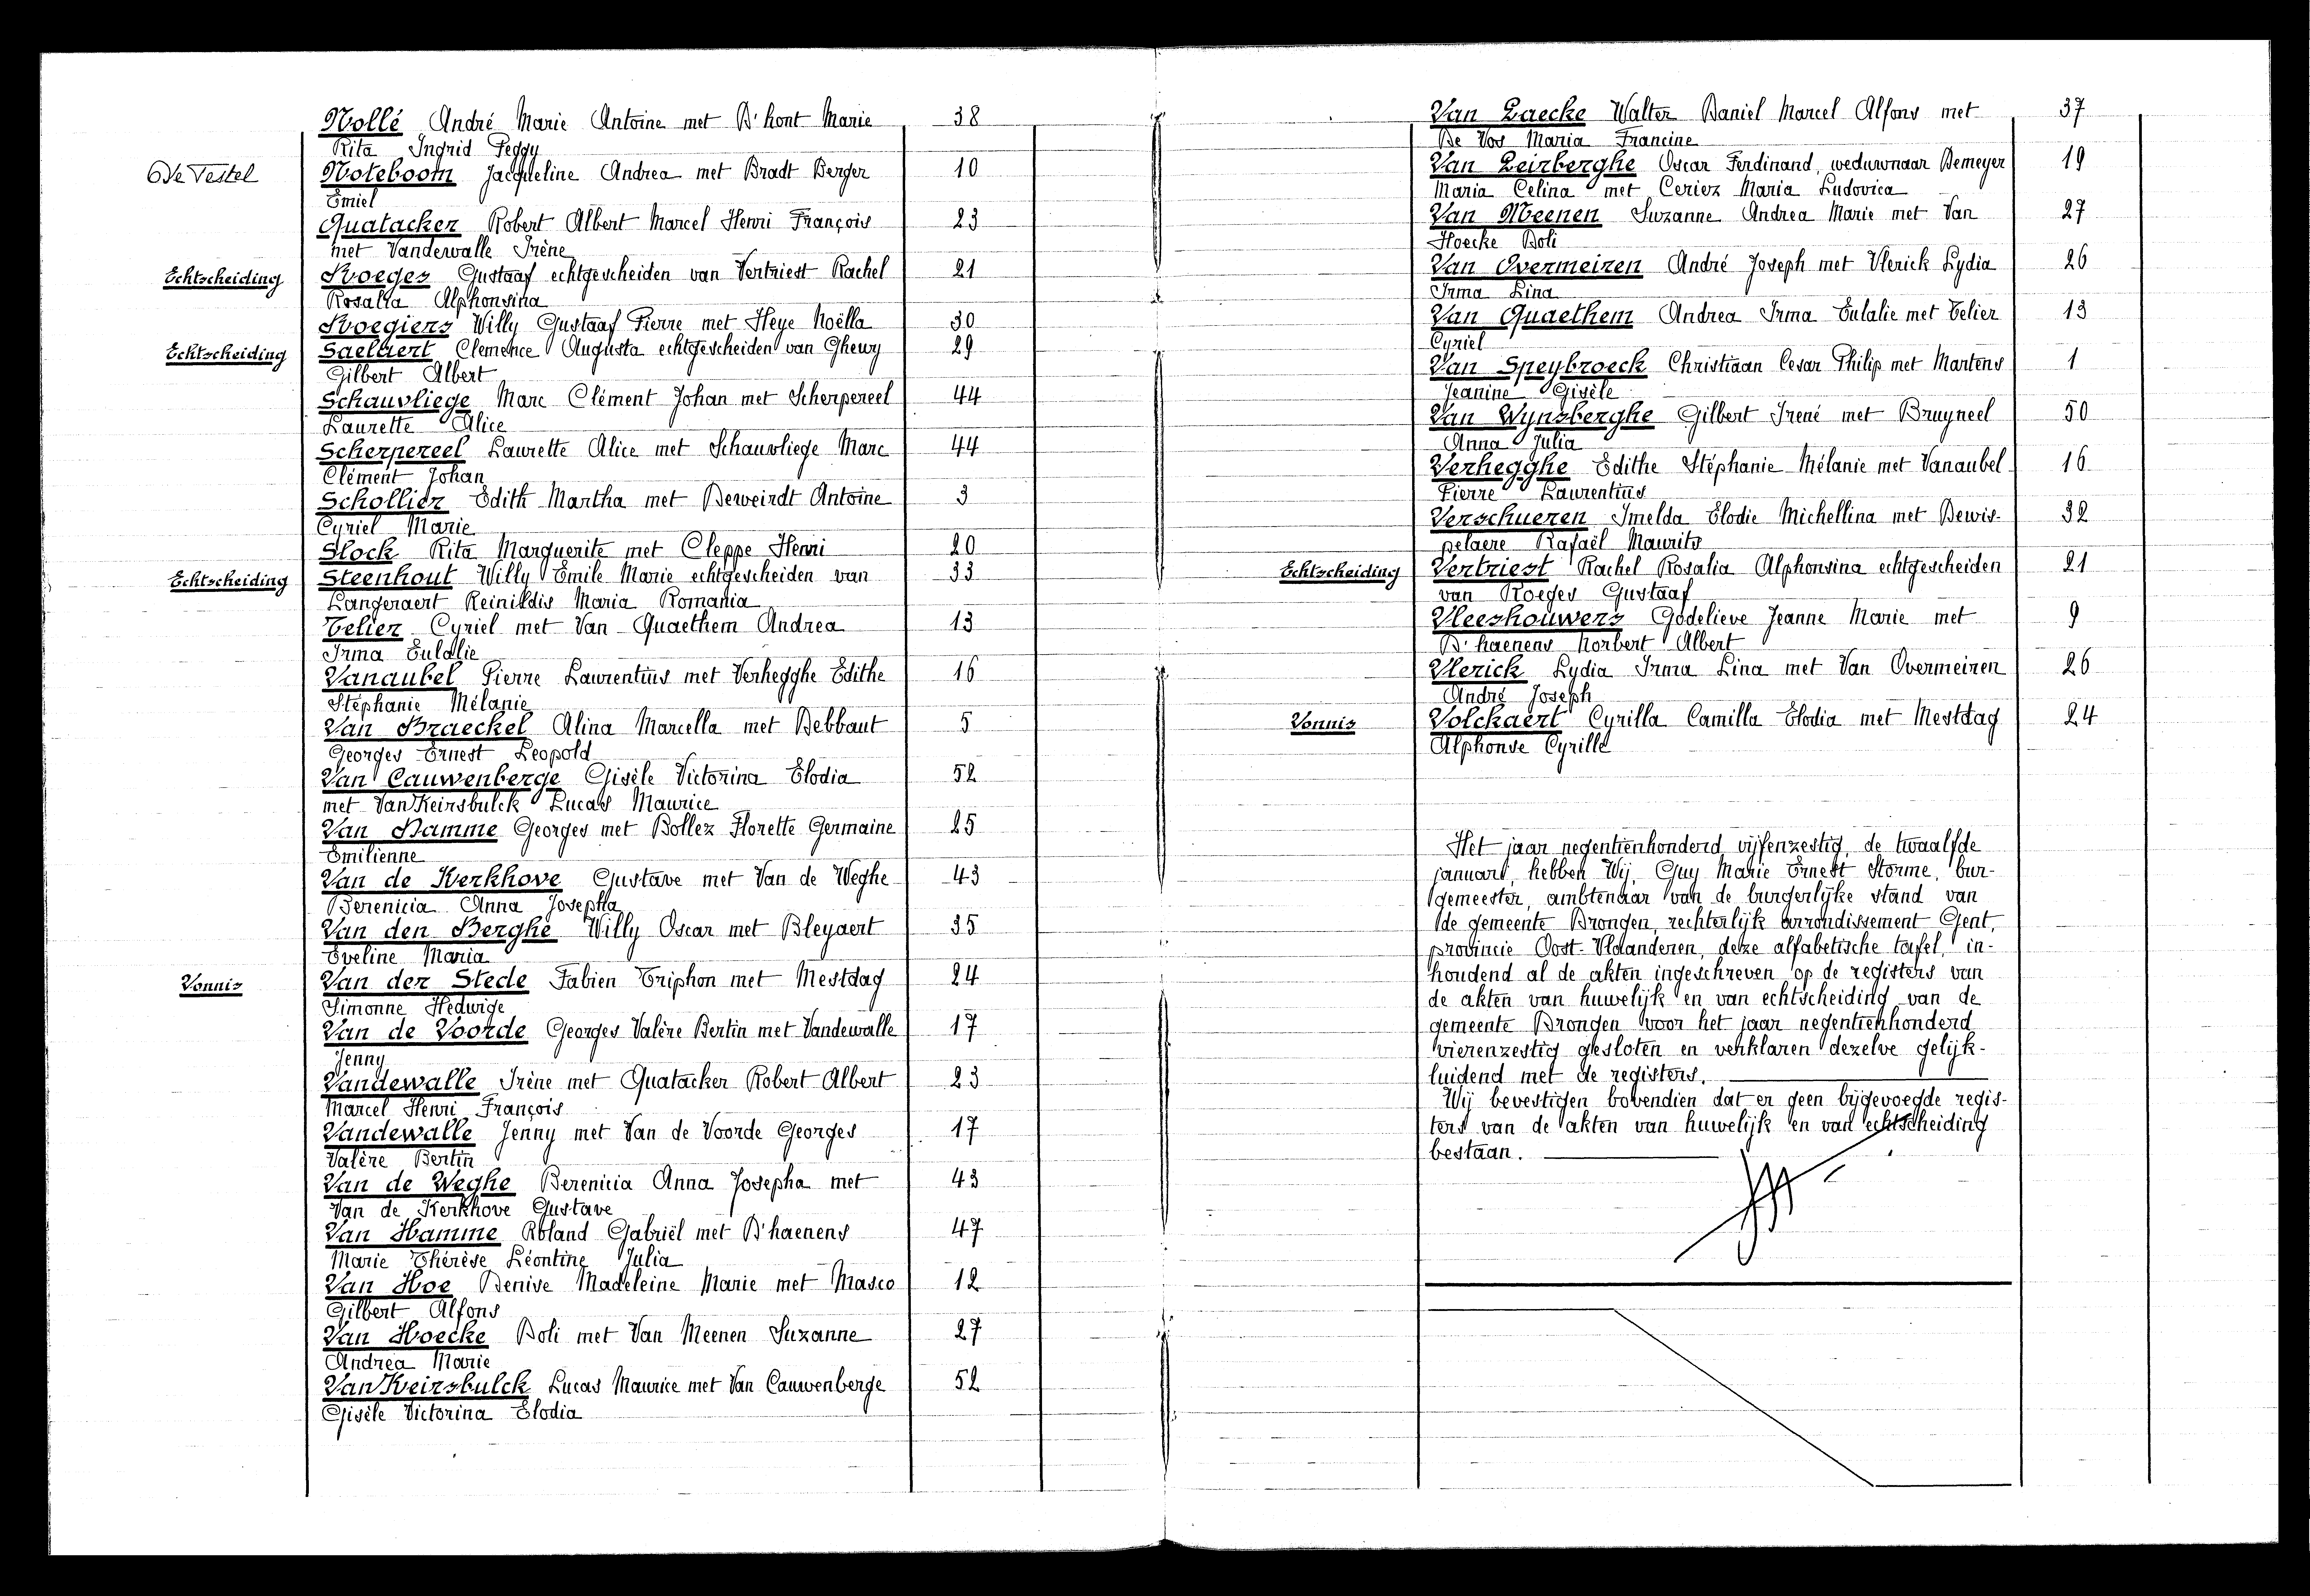 Nollé André Marie Antoine met D'hont Marie 38
Rita Ingrid Peggy
De Testel Noteboom Jacqueline Andrea met Bradt Berger 10
Emiel
Quatacker Robert Albert Marcel Henri François 23
met Vandewalle Irène
Echtscheiding Roeges Gustaaf echtgescheiden van Vertriest Rachel 21
Rosalia Alphonsina
Roegiers Willy Gustaaf Pierre met Heye Noëlla 30
Echtscheiding Saelaert Clemence Augusta echtgescheiden van Ghewy 29
Gilbert Albert
Schauvliege Marc Clément Johan met Scherpereel 44
Laurette Alice
Scherpereel Laurette Alice met Schauvliege Marc 44
Clément Johan
Schollier Edith Martha met Deweirdt Antoine 3
Cyriel Marie
Slock Rita Marguerite met Cleppe Henri 20
Echtscheiding Steenhout Willy Emile Marie echtgescheiden van 33
Langeraert Reinildis Maria Romania
Telier Cyriel met Van Quaethem Andrea 13
Irma Eulalie
Vanaubel Pierre Laurentius met Verhegghe Edithe 16
Stéphanie Mélanie
Van Braeckel Alina Marcella met Debbaut 5
Georges Ernest Leopold
Van Cauwenberge Gisèle Victorina Elodia 52
met Van Keirsbulck Lucas Maurice
Van Damme Georges met Bollez Florette Germaine 25
Emilienne
Van de Kerkhove Gustave met Van de Weghe 43
Berenicia Anna Josepha
Van den Berghe Willy Oscar met Bleyaert 35
Eveline Maria
Vonnis Van der Stede Fabien Triphon met Mestdag 24
Simonne Hedwige
Van de Voorde Georges Valère Bertin met Vandewalle 17
Jenny
Vandewalle Irène met Quatacker Robert Albert 23
Marcel Henri François
Vandewalle Jenny met Van de Voorde Georges 17
Valère Bertin
Van de Weghe Berenicia Anna Josepha met 43
Van de Kerkhove Gustave
Van Hamme Roland Gabriël met D'haenens 47
Marie Thérèse Léontine Julia
Van Hoe Denise Madeleine Marie met Masco 12
Gilbert Alfons
Van Hoecke Doli met Van Meenen Suzanne 27
Andrea Marie
Van Keirsbulck Lucas Maurice met Van Cauwenberge 52
Gisèle Victorina Elodia
Van Laecke Walter Daniel Marcel Alfons met 37
De Vos Maria Francine
Van Leirberghe Oscar Ferdinand, weduwnaar Demeyer 19
Maria Celina met Ceriez Maria Ludovica
Van Meenen Suzanne Andrea Marie met Van 27
Hoecke Doli
Van Overmeiren André Joseph met Vlerick Lydia 26
Irma Lina
Van Quaethem Andrea Irma Eulalie met Telier 13
Cyriel
Van Speybroeck Christiaan Cesar Philip met Martens 1
Jeanine Gisèle
Van Wynsberghe Gilbert Irené met Bruyneel 50
Anna Julia
Verhegghe Edithe Stéphanie Mélanie met Vanaubel 16
Pierre Laurentius
Verschueren Imelda Elodie Michellina met Dewis- 32
pelaere Rafaël Maurits
Echtscheiding Vertriest Rachel Rosalia Alphonsina echtgescheiden 21
van Roeges Gustaaf
Vleeshouwers Godelieve Jeanne Marie met 9
D'haenens Norbert Albert
Vlerick Lydia Irma Lina met Van Overmeiren 26
André Joseph
Vonnis Volckaert Cyrilla Camilla Elodia met Mestdag 24
Alphonse Cyrille
Het jaar negentienhonderd vijfenzestig, de twaalfde
januari, hebben Wij, Guy Marie Ernest Storme, bur-
gemeester, ambtenaar van de burgerlijke stand van
de gemeente Drongen, rechterlijk arrondissement Gent,
provincie Oost-Vlaanderen, deze alfabetische tafel, in-
houdend al de akten ingeschreven op de registers van
de akten van huwelijk en van echtscheiding van de
gemeente Drongen voor het jaar negentienhonderd
vierenzestig gesloten en verklaren dezelve gelijk-
luidend met de registers.
Wij bevestigen bovendien dat er geen bijgevoegde regis-
ters van de akten van huwelijk en van echtscheiding
bestaan.